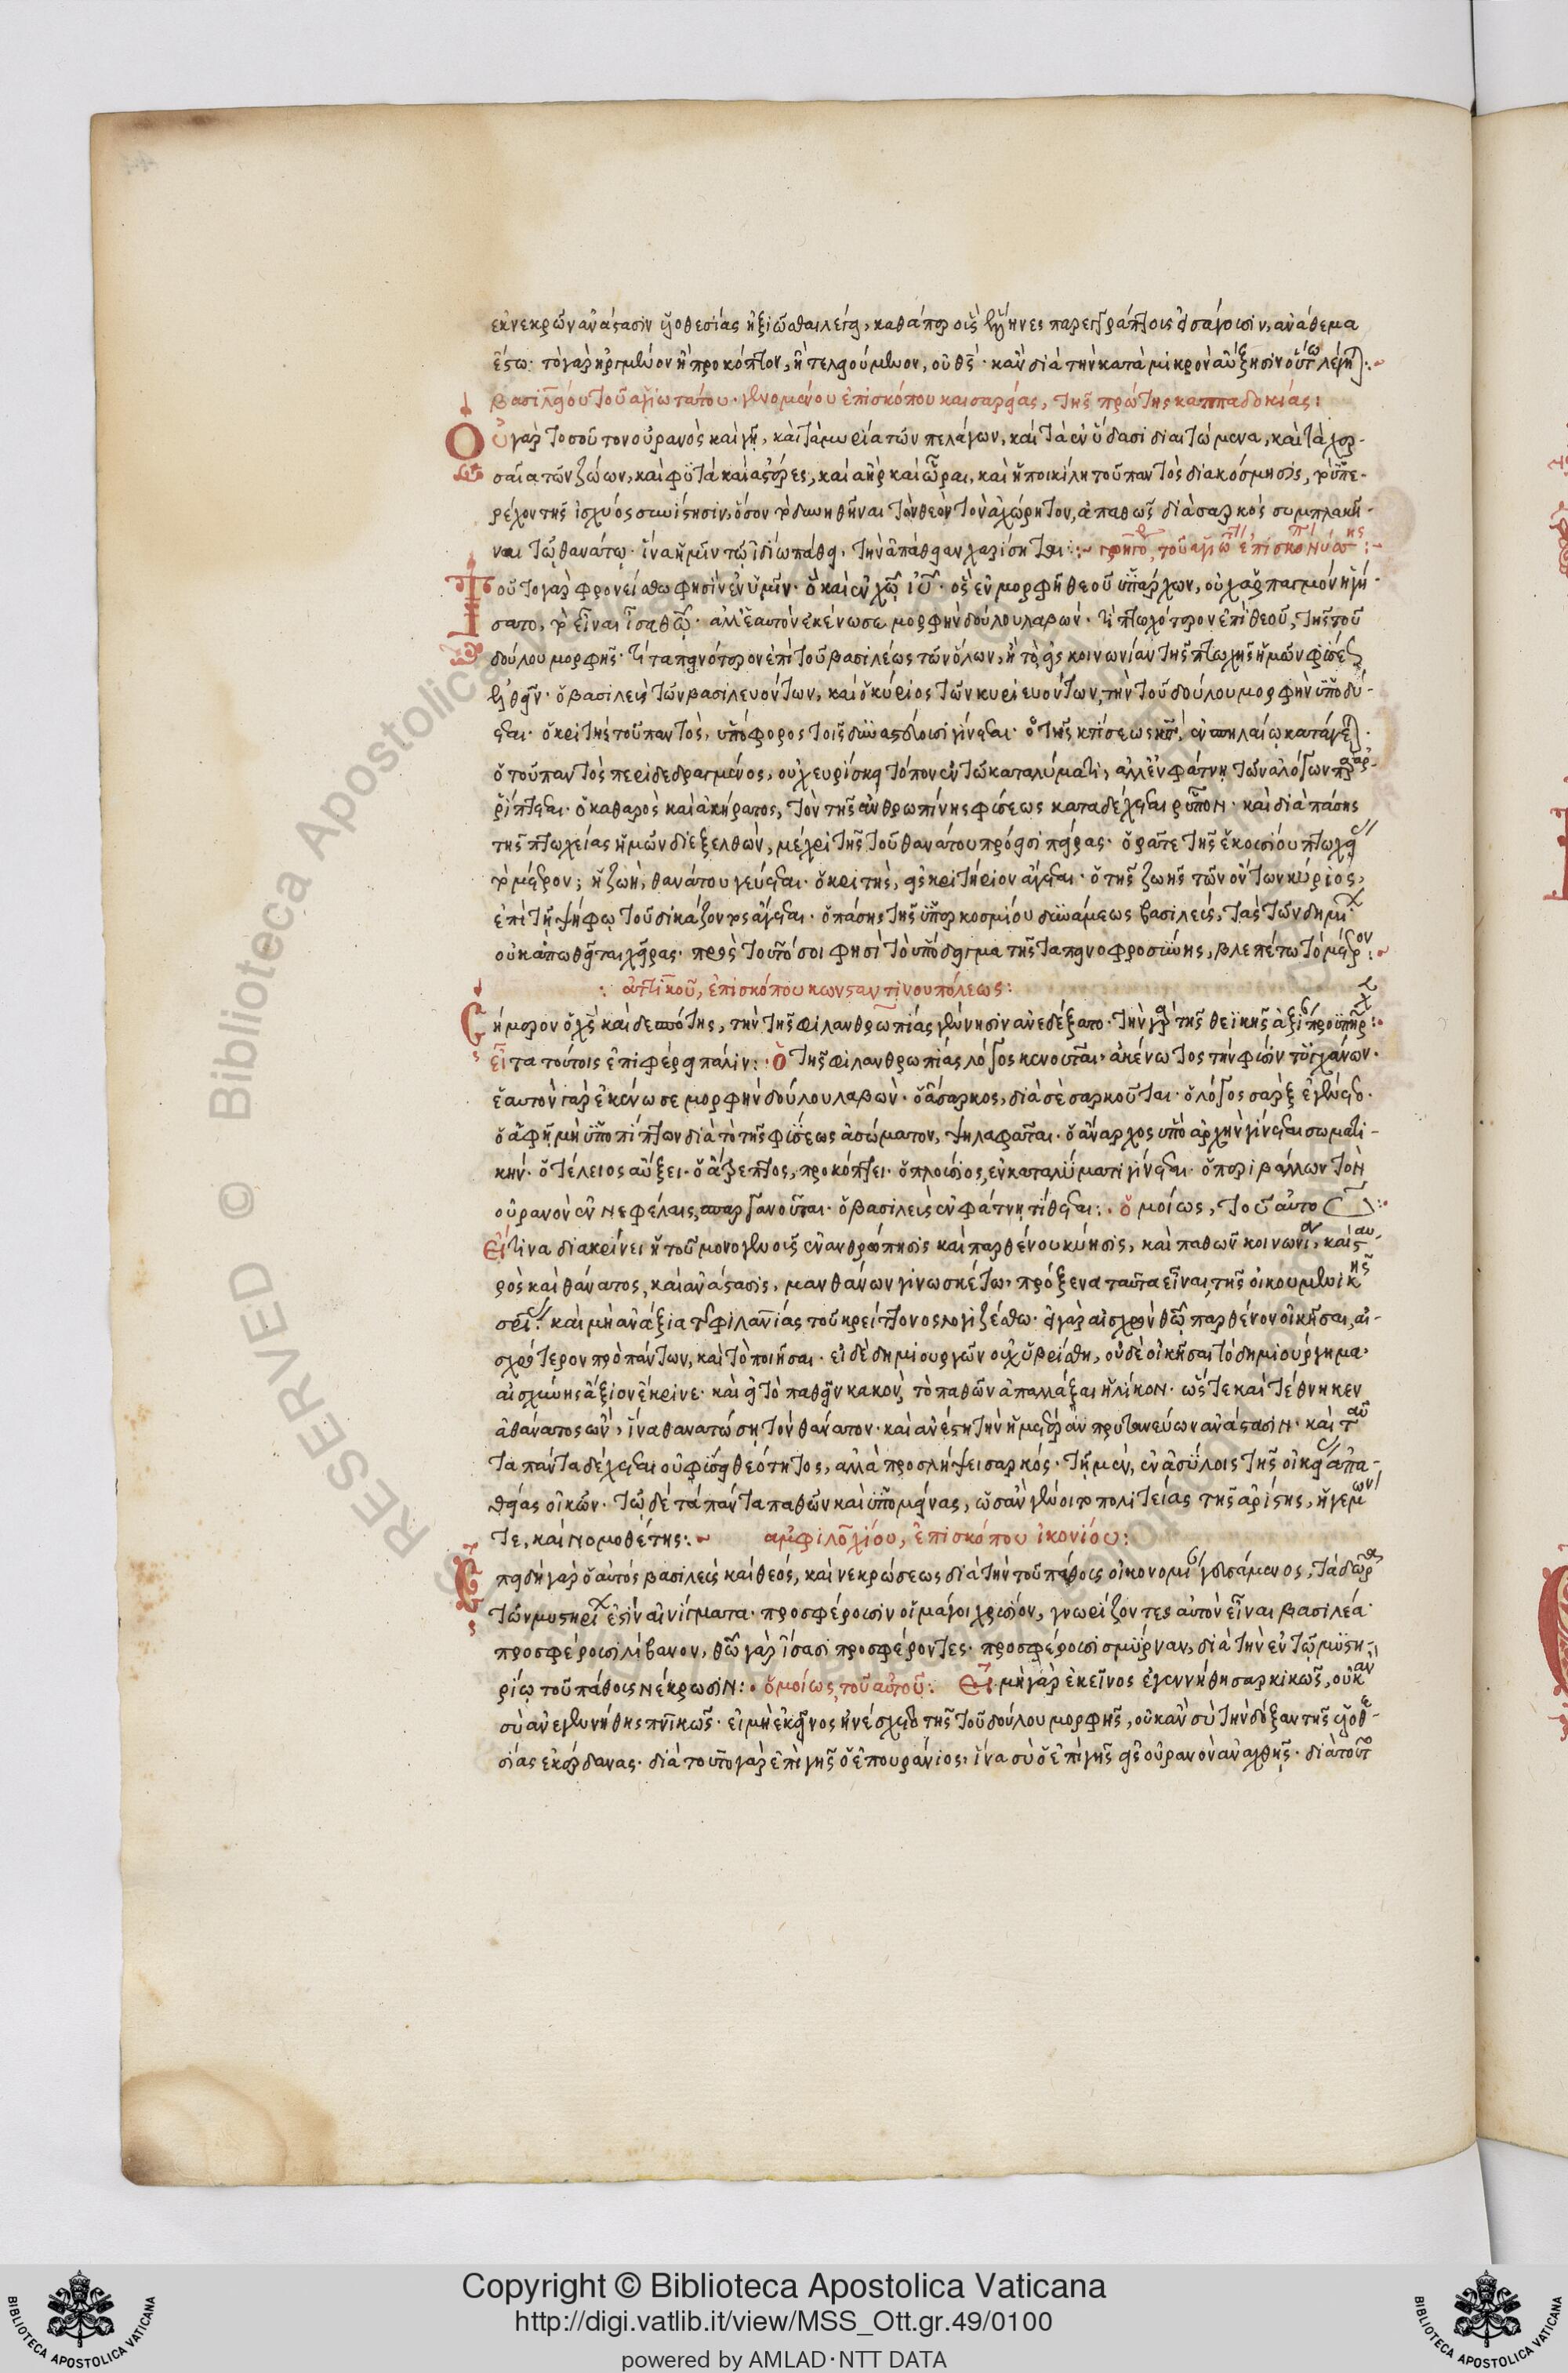 ἐκ νεκρῶν ἀνάστασιν υἱοθεσίας ἠξιῶσθαι λέγει, καθάπερ οὓς Ἕλληνες παρεγγράπτους εἰσάγουσιν, ἀνάθεμα
ἔστω· τὸ γὰρ ἠργμένον ἢ προκόπτον, ἢ τελειούμενον, οὐ θεός· κἂν διὰ τὴν κατὰ μικρὸν αὔξησιν οὕτω λέγηται:
Βασιλείου τοῦ ἁγιωτάτου· γενομένου ἐπισκόπου καισαρείας, τῆς πρώτης καππαδοκίας:
Οὐ γὰρ τοσοῦτον οὐρανὸς καὶ γῆ, καὶ τὰ μυρία τῶν πελάγων, καὶ τὰ ἐν ὕδασι διαιτώμενα, καὶ τὰ χερ-
σαῖα τῶν ζώων, καὶ φυτὰ καὶ ἀστέρες, καὶ ἀὴρ καὶ ὧραι, καὶ ἡ ποικίλη τοῦ παντὸς διακόσμησις, τὸ ὑπε-
ρέχον τῆς ἰσχύος συνίστησιν, ὅσον τὸ δυνηθῆναι τὸν θεὸν τὸν ἀχώρητον, ἀπαθῶς διὰ σαρκὸς συμπλακῆ-
ναι τῷ θανάτῳ· ἵνα ἡμῖν τῷ ἰδίῳ πάθει, τὴν ἀπάθειαν χαρίσηται: γρηγορ, τοῦ ἁγιωτ ἐπισκόπ Νύσης:
Τοῦτο γὰρ φρονείσθω φησὶν ἐν ὑμῖν· ὃ καὶ ἐν χῷ ἰῦ· ὃς ἐν μορφῇ θεοῦ ὑπάρχων, οὐχ ἁρπαγμὸν ἡγή-
σατο, τὸ εἶναι ἶσα θῷ· ἀλλ' ἑαυτὸν ἐκένωσε μορφὴν δούλου λαβών· τί πτωχότερον ἐπὶ θεοῦ, τῆς τοῦ
δούλου μορφῆς· τί ταπεινότερον ἐπὶ τοῦ βασιλέως τῶν ὅλων, ἢ τὸ εἰς κοινωνίαν τῆς πτωχῆς ἡμῶν φύσεως
ἐλθεῖν· ὁ βασιλεὺς τῶν βασιλευόντων, καὶ ὁ κύριος τῶν κυριευόντων, τὴν τοῦ δούλου μορφὴν ὑποδύ-
εται· ὁ κριτὴς τοῦ παντὸς, ὑπόφορος τοῖς δυναστεύουσι γίνεται· ὁ τῆς κτίσεως κς, ἐν σπηλαίῳ κατάγεται·
ὁ τοῦ παντὸς περιδεδραγμένος, οὐχ εὑρίσκει τόπον ἐν τῷ καταλύματι, ἀλλ' ἐν φάτνῃ τῶν ἀλόγων παραρ-
ρίπτεται· ὁ καθαρὸς καὶ ἀκήρατος, τὸν τῆς ἀνθρωπίνης φύσεως καταδέχεται ρύπον· καὶ διὰ πάσης
τῆς πτωχείας ἡμῶν διεξελθὼν, μέχρι τῆς τοῦ θανάτου πρόεισι πείρας· ὁρᾶτε τῆς ἑκουσίου πτωχείας
τὸ μέτρον; ἡ ζωὴ, θανάτου γεύεται· ὁ κριτὴς, εἰς κριτήριον ἄγεται· ὁ τῆς ζωῆς τῶν ὄντων κύριος,
ἐπὶ τῇ ψήφῳ τοῦ δικάζοντος ἄγεται· ὁ πάσης τῆς ὑπερκοσμίου δυνάμεως βασιλεύς, τὰς τῶν δημίων
οὐκ ἀπωθεῖται χεῖρας· πρὸς τοῦτό σοι φησὶ τὸ ὑπόδειγμα τῆς ταπεινοφροσύνης, βλεπέτω τὸ μέτρον:
: ἀττικοῦ, ἐπισκόπου κωνσταντινουπόλεως:
Σήμερον ὁ χς καὶ δεσπότης, τὴν τῆς φιλανθρωπίας γέννησιν ἀνεδέξατο· τὴν γὰρ τῆς θεϊκῆς ἀξίας προϋπῆρχε:
εἶτα τούτοις ἐπιφέρει πάλιν: ὁ τῆς φιλανθρωπίας λόγος κενοῦται· ἀκένωτος τὴν φύσιν τυγχάνων·
ἑαυτὸν γὰρ ἐκένωσε μορφὴν δούλου λαβὼν· ὁ ἄσαρκος, διὰ σὲ σαρκοῦται· ὁ λόγος σὰρξ ἐγένετο·
ὁ ἁφῇ μὴ ὑποπίπτων διὰ τὸ τῆς φύσεως ἀσώματον, ψηλαφᾶται· ὁ ἄναρχος ὑπὸ ἀρχὴν γίνεται σωματι-
κήν· ὁ τέλειος αὔξει· ὁ ἄτρεπτος, προκόπτει· ὁ πλούσιος, ἐν καταλύματι γίνεται· ὁ περιβάλλων τὸν
οὐρανὸν ἐν νεφέλαις, σπαργανοῦται· ὁ βασιλεὺς ἐν φάτνῃ τίθεται: ὁμοίως, τοῦ αὐτοῦ:
Εἰ τινα διακρίνει ἡ τοῦ μονογενοῦς ἐνανθρώπησις καὶ παρθένου κύησις, καὶ παθῶν κοινωνία, καὶ σταυ-
ρὸς καὶ θάνατος, καὶ ἀνάστασις, μανθάνων γινωσκέτω, πρόξενα ταῦτα εἶναι, τῆς οἰκουμενικῆς
σρίας· καὶ μὴ ἀνάξια τῆς φιλανίας τοῦ κρείττονος λογιζέσθω· εἰ γὰρ αἰσχρὸν θῷ παρθένον οἰκῆσαι, αἰ-
σχρότερον πρὸ πάντων, καὶ τὸ ποιῆσαι· εἰ δὲ δημιουργῶν οὐχ ὑβρίσθη, οὐδὲ οἰκῆσαι τὸ δημιούργημα,
αἰσχύνης ἄξιον ἔκρινε· καὶ εἰ τὸ παθεῖν κακὸν, τὸ παθῶν ἀπαλλάξαι ἡλίκον· ὥστε καὶ τέθνηκεν
ἀθάνατος ὢν, ἵνα θανατώσῃ τὸν θάνατον· καὶ ἀνέστη τὴν ἡμετέραν πρυτανεύων ἀνάστασιν· καὶ ταῦ-
τα πάντα δέχεται οὐ φύσει θεότητος, ἀλλὰ προσλήψει σαρκός· τῇ μὲν, ἐν ἀσύλοις τῆς οἰκείας ἀπα-
θείας οἰκῶν· τῷ δὲ τὰ πάντα παθὼν καὶ ὑπομείνας, ὡς ἂν γένοιτο πολιτείας τῆς ἀρίστης, ἡγεμών
τε, καὶ νομοθέτης: ἀμφιλοχίου, ἐπισκόπου ἰκονίου:
Ἐπειδὴ γὰρ ὁ αὐτὸς βασιλεὺς καὶ θεός, καὶ νεκρώσεως διὰ τὴν τοῦ πάθους οἰκονομίαν γευσάμενος, τὰ δῶρα
τῶν μυστηρίων ἐστὶν αἰνίγματα· προσφέρουσιν οἱ μάγοι χρυσίον, γνωρίζοντες αὐτὸν εἶναι βασιλέα·
προσφέρουσι λίβανον, θῷ γὰρ ἴσασι προσφέροντες· προσφέρουσι σμύρναν, διὰ τὴν ἐν τῷ μυστη-
ρίῳ τοῦ πάθους νέκρωσιν: ὁμοίως, τοῦ αὐτοῦ: Εἰ μὴ γὰρ ἐκεῖνος ἐγεννήθη σαρκικῶς, οὐκ ἂν
σὺ ἀνεγεννήθης πνικῶς· εἰ μὴ ἐκεῖνος ἠνέσχετο τῆς τοῦ δούλου μορφῆς, οὐκ ἂν σὺ τὴν δόξαν τῆς υἱοθε-
σίας ἐκέρδανας· διὰ τοῦτο γὰρ ἐπὶ γῆς ὁ ἐπουράνιος, ἵνα σὺ ὁ ἐπὶ γῆς εἰς οὐρανὸν ἀναχθῇς· διὰ τοῦτο
RESERVED © Biblioteca Apostolica Vaticana
Copyright © Biblioteca Apostolica Vaticana
http://digi.vatlib.it/view/MSS_Ott.gr.49/0100
powered by AMLAD·NTT DATA
BIBLIOTECA APOSTOLICA VATICANA
BIBLIOTECA APOSTOLICA VATICANA